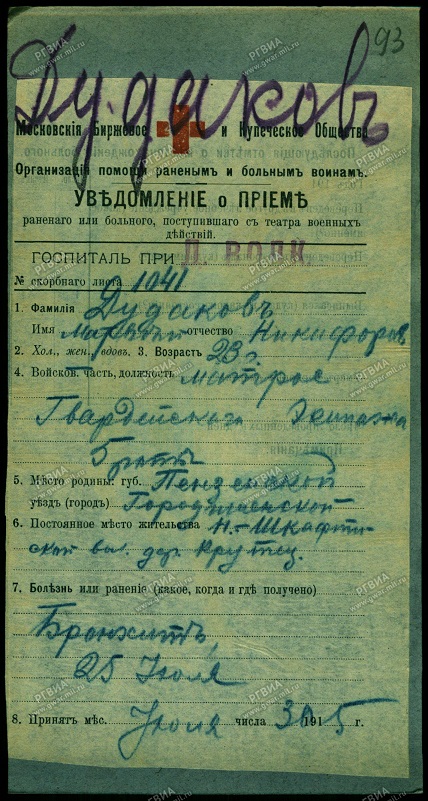 93
Дудаковъ
Московскія Биржевое и Купеческое Общества
Организація помощи раненымъ и больнымъ воинамъ.
УВѢДОМЛЕНІЕ о ПРІЕМѢ
раненаго или больного, поступившаго съ театра военныхъ
дѣйствій.
ГОСПИТАЛЬ ПРИ
№ скорбнаго листа 1041
1. Фамилія Дудаковъ
Имя отчество Никифоров
2. Хол., жен., вдовъ. 3. Возрастъ 23 г.
4. Войсков. часть, должность матрос
Гвардейскаго Экипажа
5. Мѣсто родины: губ. Пензенской
уѣздъ (городъ) Городищенской
6. Постоянное мѣсто жительства Н.-Шкафти-
ской вол. дер. Крутец.
7. Болѣзнь или раненіе (какое, когда и гдѣ получено)
Бронхитъ
25 Июля
8. Принятъ мѣс. Июля числа 30 1915 г.
РГВИА
www.gwar.mil.ru